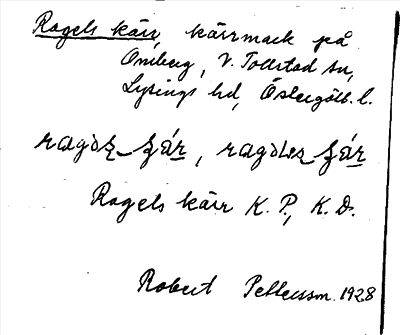 Ragels kärr, kärrmark på
Omberg, V. Tollstad sn,
Lysings hd, Östergötl. l.
Ragels kärr K. P., K. D.
Robert Pettersson. 1928